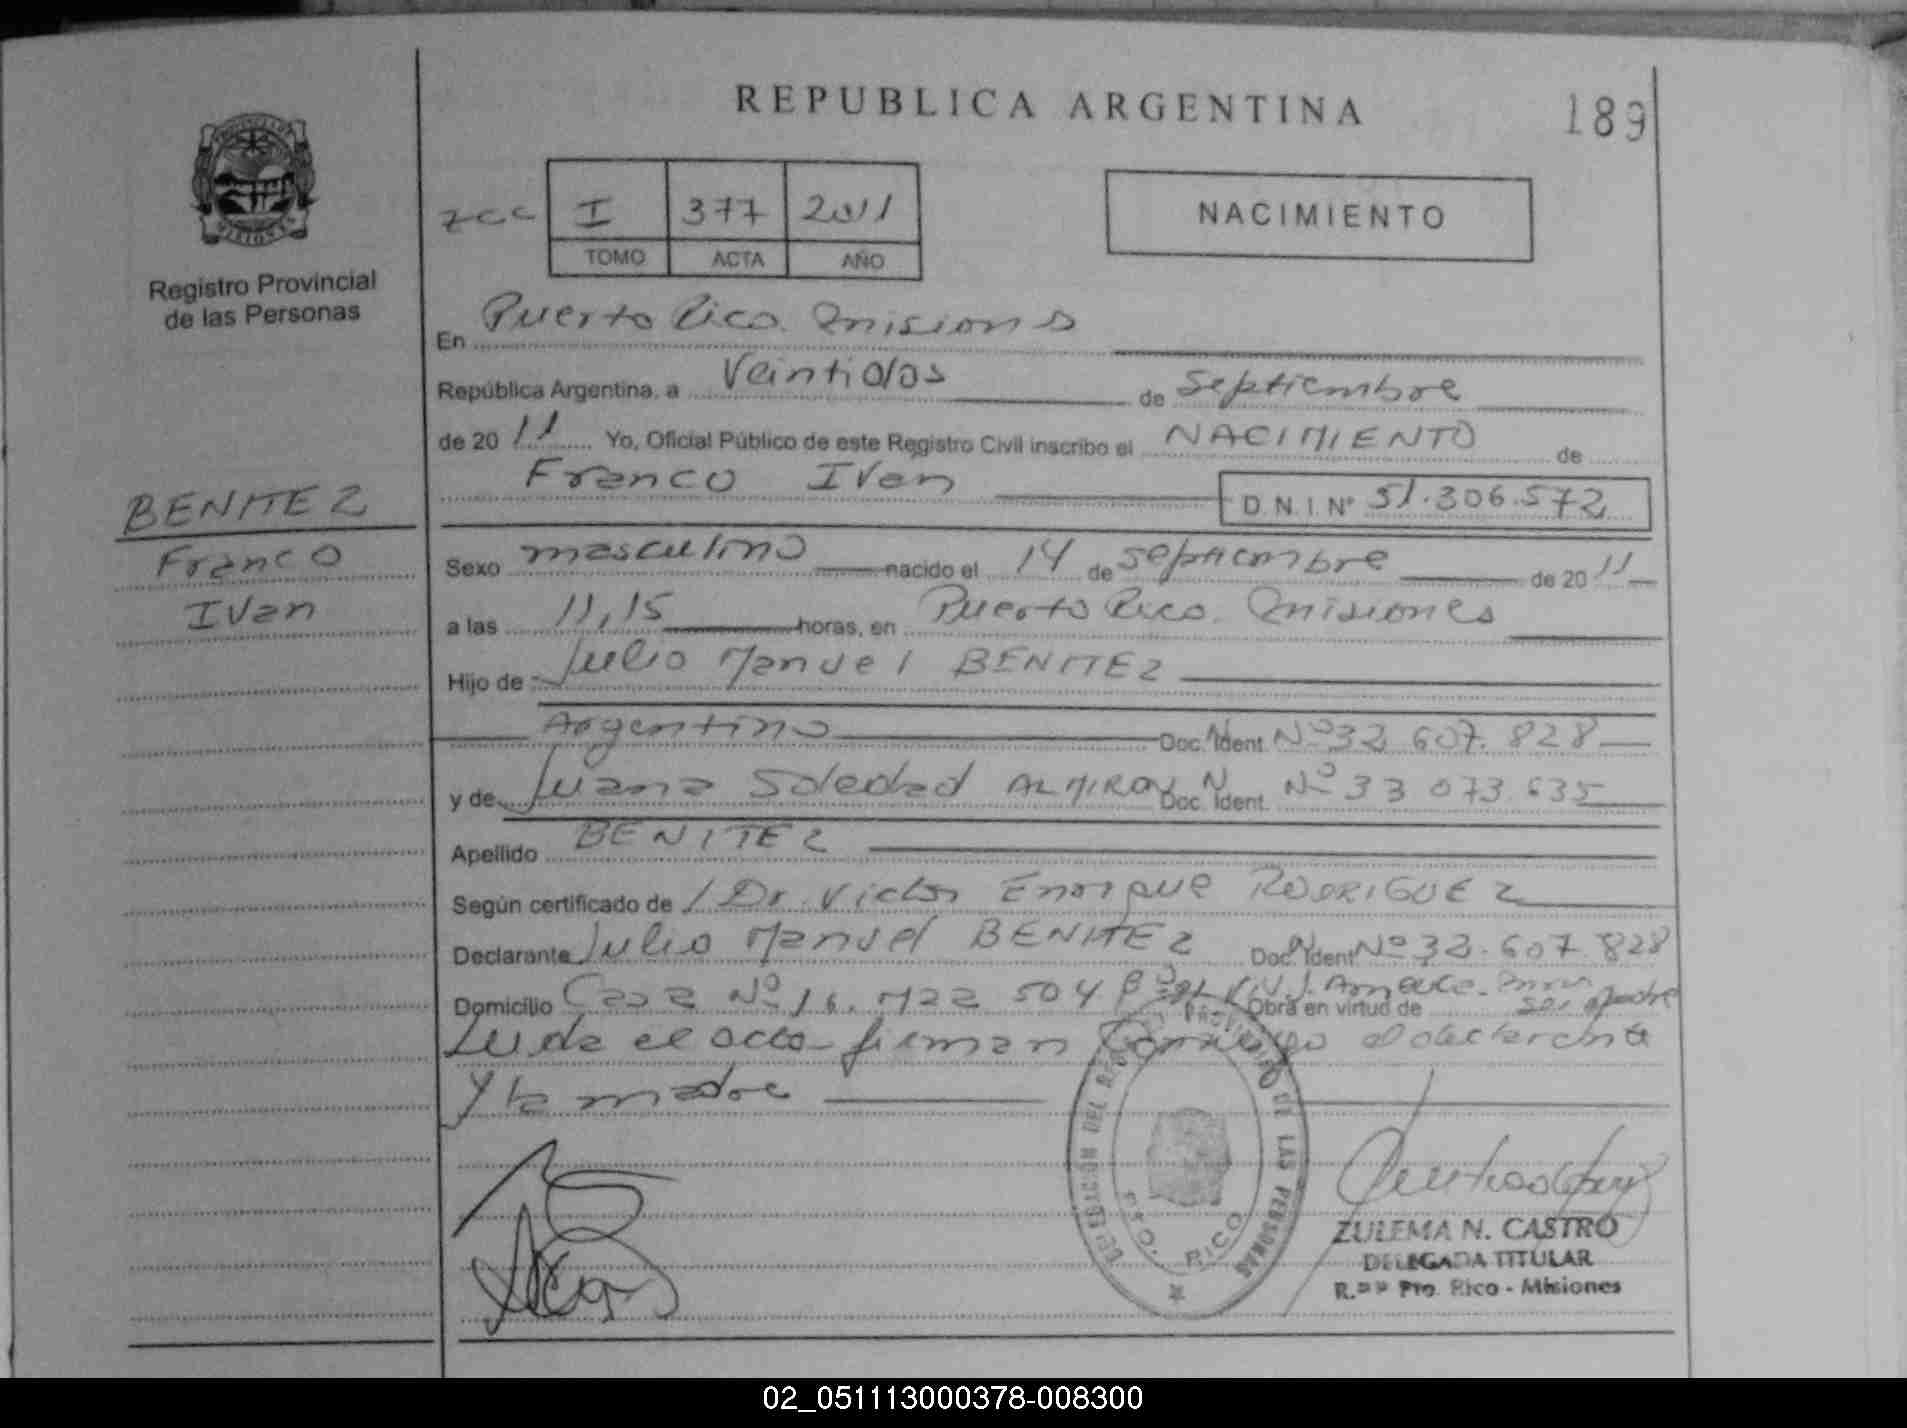 REPUBLICA ARGENTINA
189
Registro Provincial
de las Personas
zcc I 377 2011
TOMO ACTA AÑO
NACIMIENTO
En Puerto Rico. Misiones
República Argentina, a Veintidos de Septiembre
de 2011 Yo, Oficial Público de este Registro Civil inscribo el NACIMIENTO de
Franco Ivan D.N.I.Nº 51.306.572
BENITEZ
Franco
Ivan
Sexo masculino nacido el 14 de septiembre de 2011
a las 11,15 horas, en Puerto Rico. Misiones
Hijo de Julio Manuel BENITEZ
Argentino Doc. Ident. Nº 32 607. 828
y de Juana Soledad ALMIRON Doc. Ident. Nº 33 073.635
Apellido BENITEZ
Según certificado de Dr. Victor Enrique RODRIGUEZ
Declarante Julio Manuel BENITEZ Doc. Ident Nº 32.607.828
Domicilio Casa Nº 16. Mza 504 Obra en virtud de ser padre
Leida el acta firman Conmigo el declarante
y la madre
DELEGACION DEL REGISTRO PROVINCIAL DE LAS PERSONAS
PTO. RICO
ZULEMA N. CASTRO
DELEGADA TITULAR
R.P.P. Pto. Rico - Misiones
02_051113000378-008300